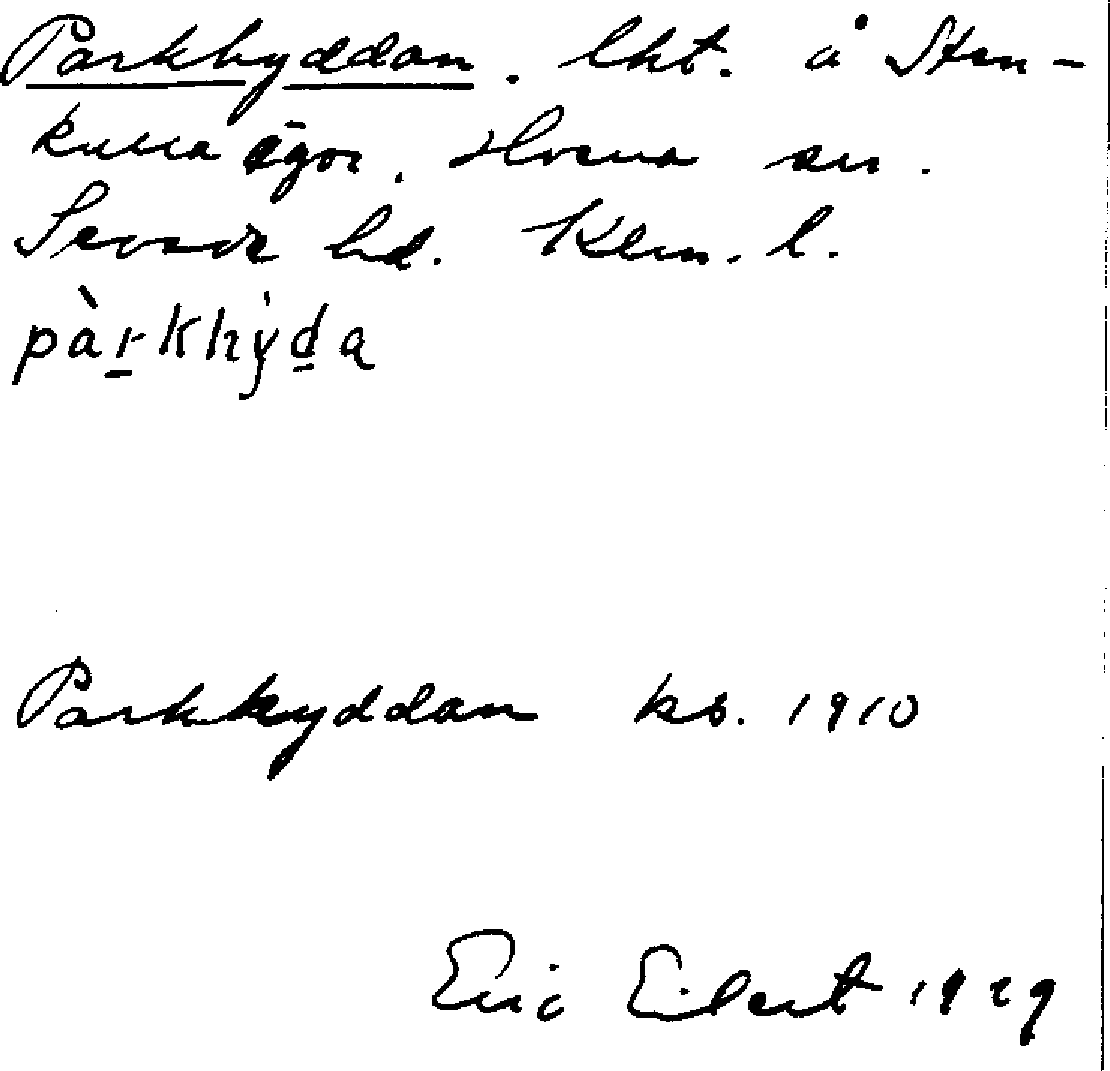 Parkhyddan. lht. å Sten-
kulla ägor, Hossna sn.
Kens. l.
pàrkhỳda
Parkhyddan kb. 1910
Eric Eilert 1929